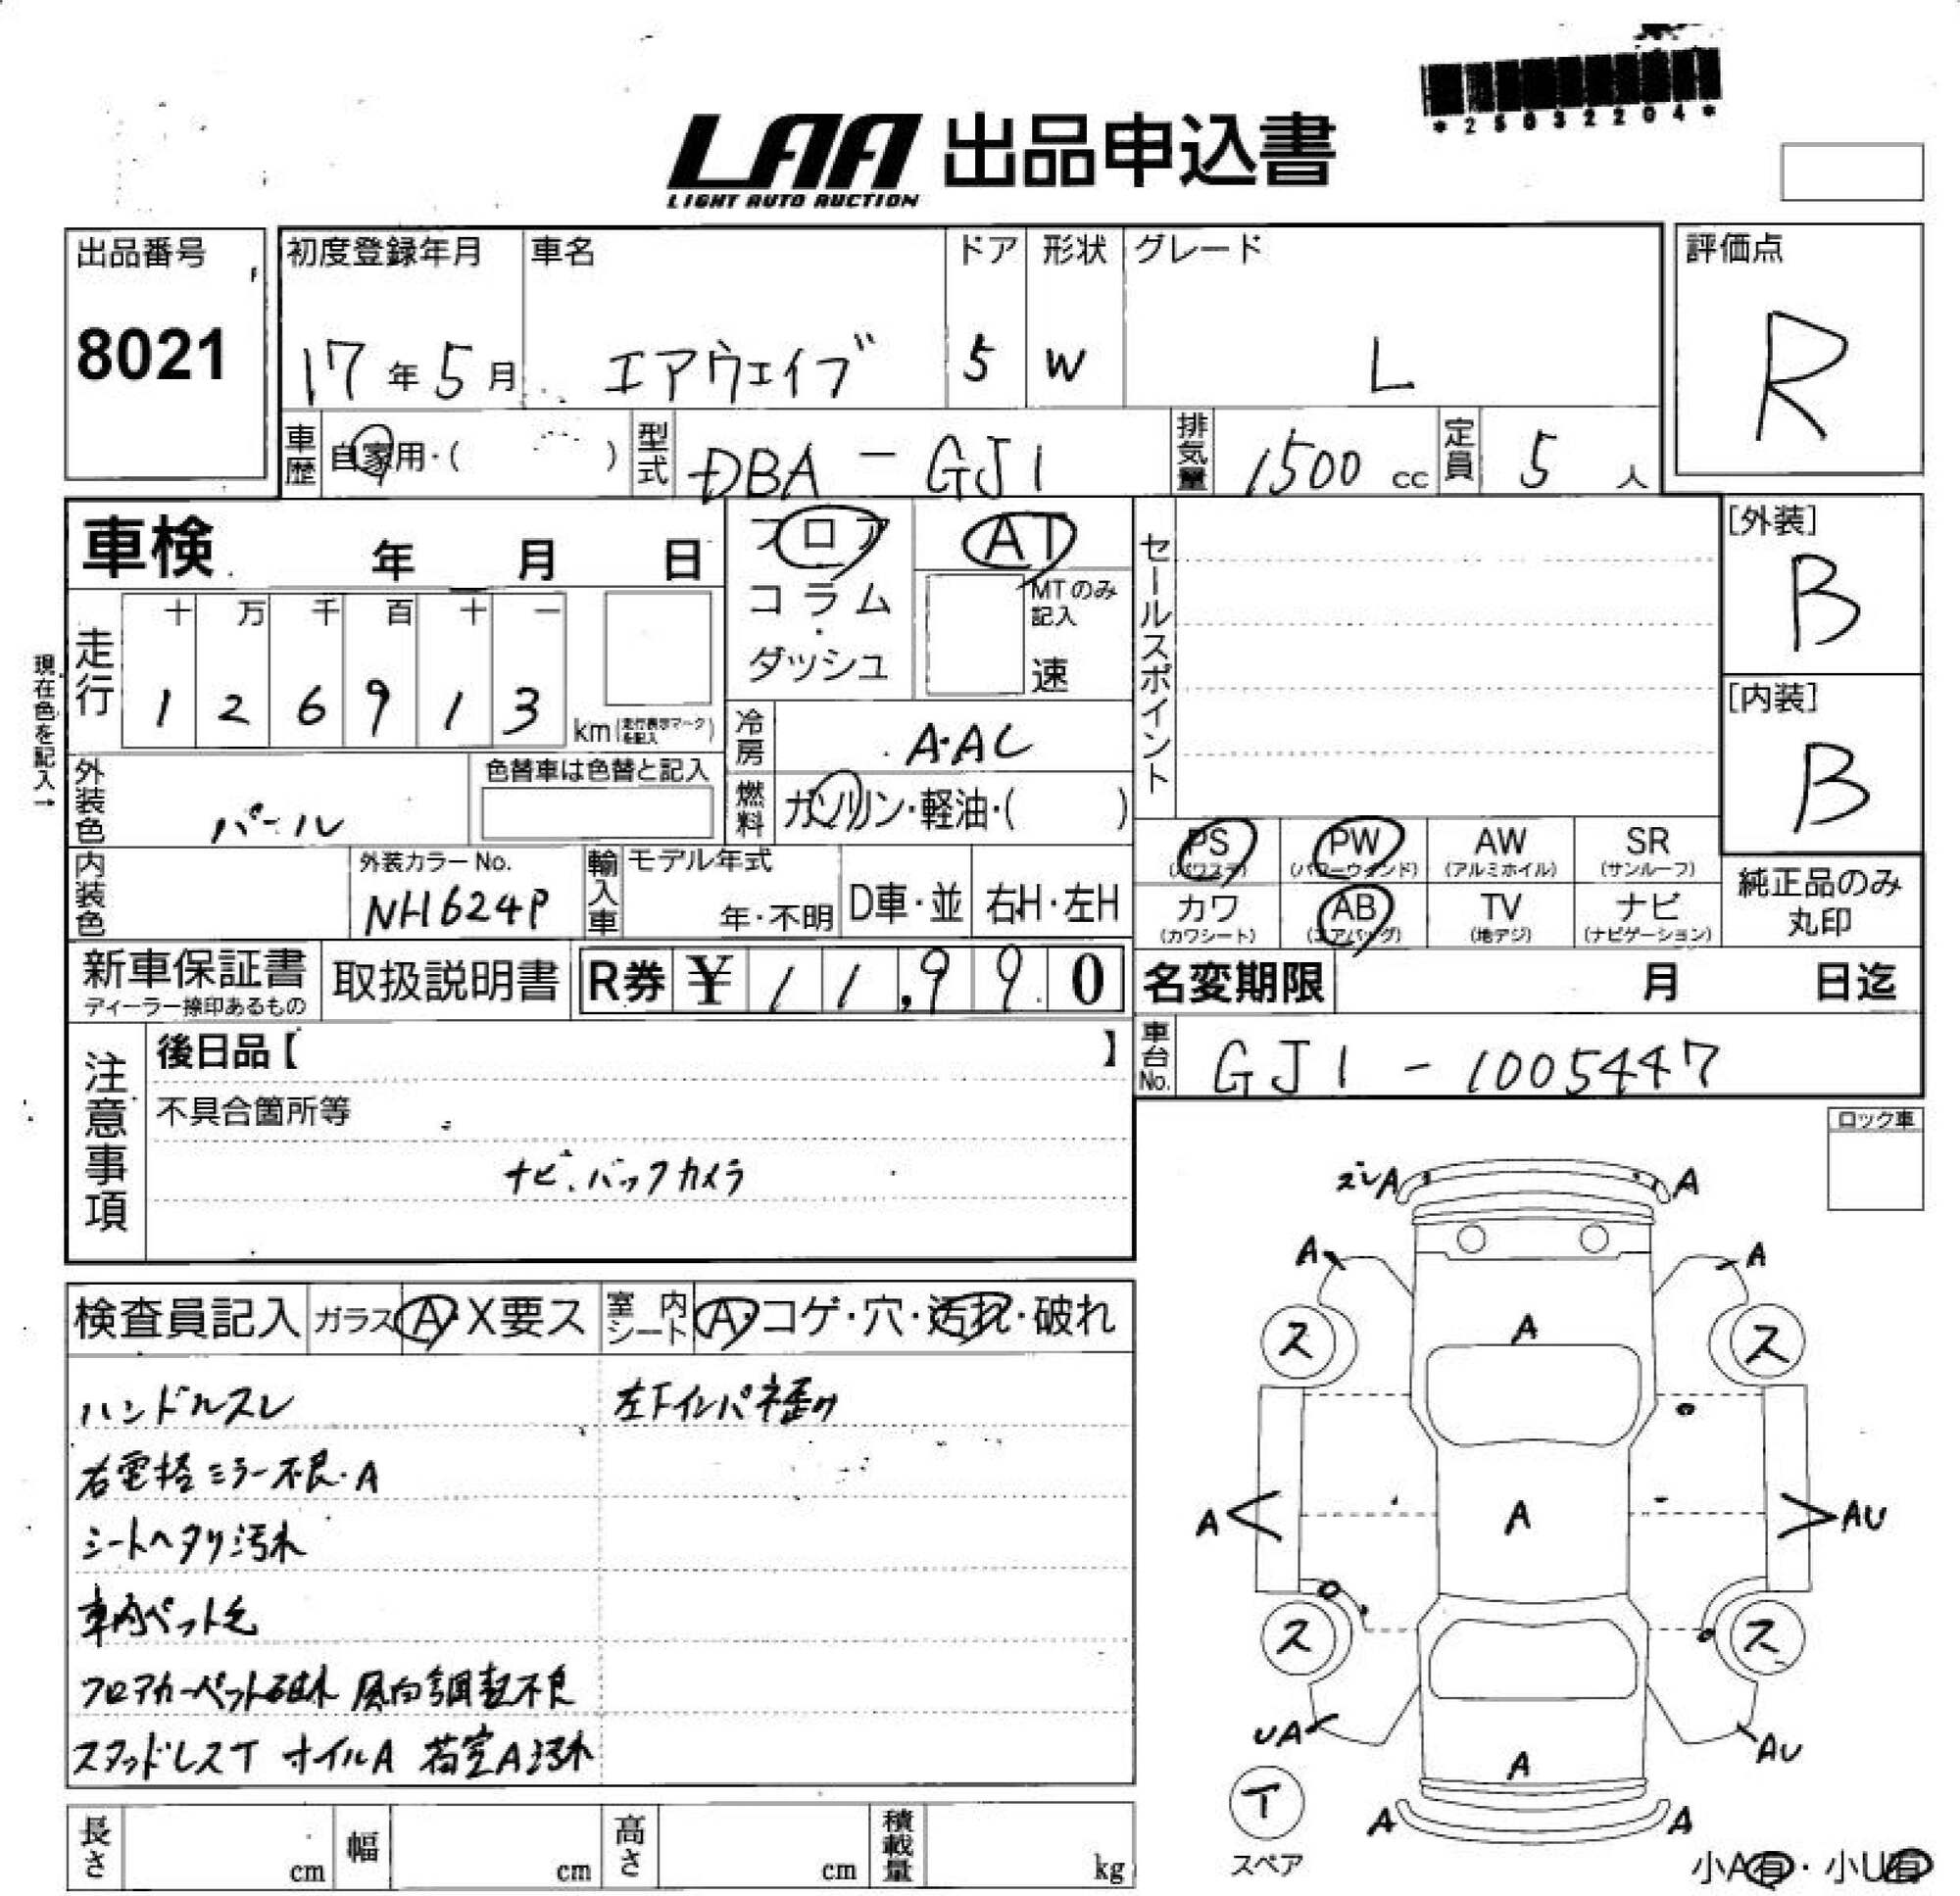 *25032204*
LAA 出品申込書
LIGHT AUTO AUCTION
出品番号 初度登録年月 車名 ドア 形状 グレード 評価点
8021 17年5月 エアウェイブ 5 W L R
車歴 自家用・( ) 型式 DBA-GJ1 排気量 1500cc 定員 5人
車検 年 月 日 フロア AT セールスポイント [外装]
コラム・ MTのみ記入 B
ダッシュ 速
現在色を記入→
走行 十 万 千 百 十 一
1 2 6 9 1 3 km(走行表示マークを記入) [内装]
冷房 A・AC B
外装色 パール 色替車は色替と記入 燃料 ガソリン・軽油・( )
PS (パワステ) PW (パワーウインド) AW (アルミホイル) SR (サンルーフ)
内装色 外装カラーNo. NH624P 輸入車 モデル年式 年・不明 D車・並 右H・左H
カワ (カワシート) AB (エアバッグ) TV (地デジ) ナビ (ナビゲーション) 純正品のみ丸印
新車保証書 ディーラー捺印あるもの 取扱説明書 R券 ¥11,990 名変期限 月 日迄
注意事項 後日品【 】 車台No. GJ1-1005447
不具合箇所等 ロック車
ナビ、バックカメラ
ズレA A
A A
検査員記入 ガラス A・X要ス 室内シート A・コゲ・穴・汚れ・破れ
A
ス ス
ハンドルスレ 左下インパネ歪み
右電格ミラー不良・A
A A AU
シートヘタリ汚れ
車内ペット毛
ス ス
フロアカーペット破れ 風向調整不良
UA AU
スタッドレスT オイルA 荷室A汚れ
A
T
スペア
A A
長さ cm 幅 cm 高さ cm 積載量 kg
小A有・小U有